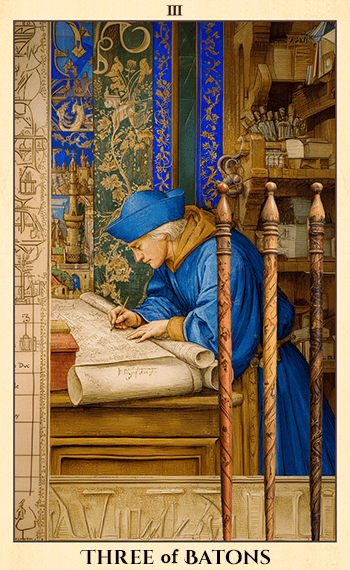 III
THREE of BATONS